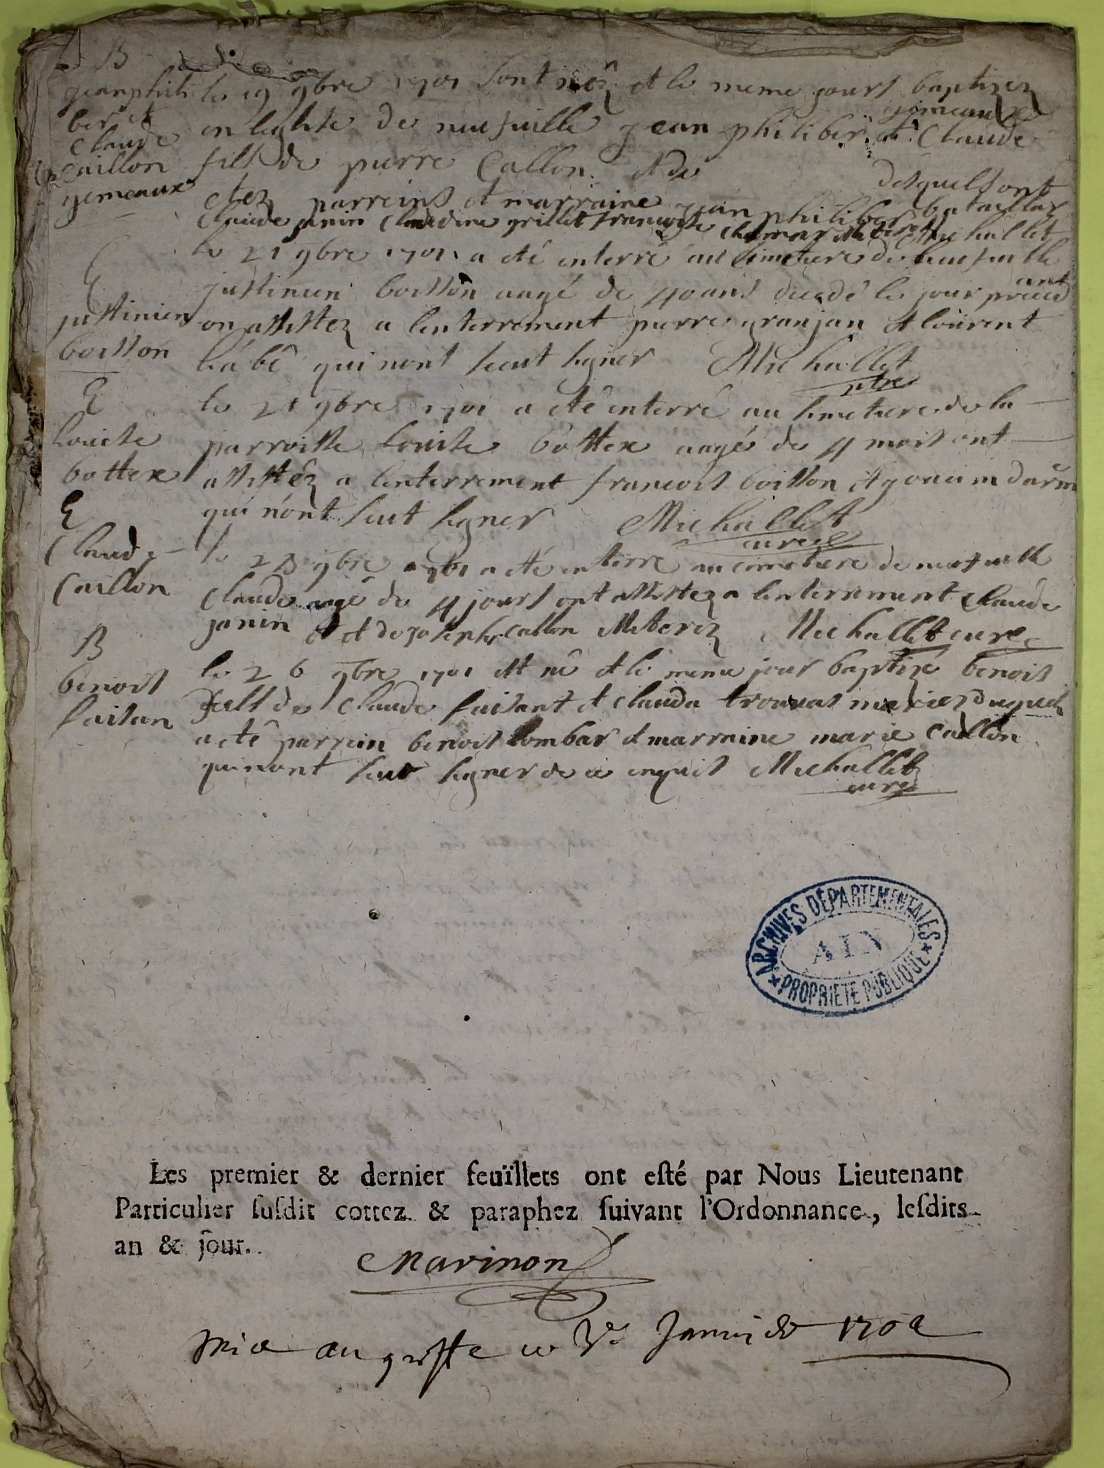 B
jean phili
ber et
Claude
Caillon
gemeaux
le 19 9bre 1701 sont nez et le meme jours baptizez
gemeaux
en leglise de neufville jean philiber et Claude
fils de pierre Callon et de desquels ont
etez parreins et marraine jean philiber bataillar
Claude janin Claudine grillet francoise
E
justinien
boisson
le 21 9bre 1701 a eté enterré au cimetiere de neufville
justinien boisson aagé de 40 ans decedé le jour preced
ant
on assistez a lenterrement pierre granjan et lourent
labé qui nont sceut signer Michallet
E
Louise
bottex
le 21 9bre 1701 a eté enterré au cimetiere de la
parroisse Louise bottex aagé de 4 mois ont
assistéz a lenterrement francois boisson et
qui nont sceut signer Michallet
curé
E
Claude
Caillon
le 23 9bre 1701 a eté enterré au cimetiere de neufville
Claude aagé de 4 jours ont assistez a lenterrement Claude
janin et de joseph Callon Michallet curé
B
benoist
faisan
le 26 9bre 1701 est né et le meme jour baptizé benoist
fils de Claude faisant et Clauda mariez duquel
a eté parrein benoist lombar et marraine marie Caillon
qui nont sceut signer de ce enquis Michallet
curé
ARCHIVES DÉPARTEMENTALES
AIN
PROPRIÉTÉ PUBLIQUE
Les premier & dernier feüillets ont esté par Nous Lieutenant
Particulier susdit cottez & paraphez suivant l'Ordonnance, lesdits
an & jour.
Marinon
Mis au greffe ce Janvier 1702